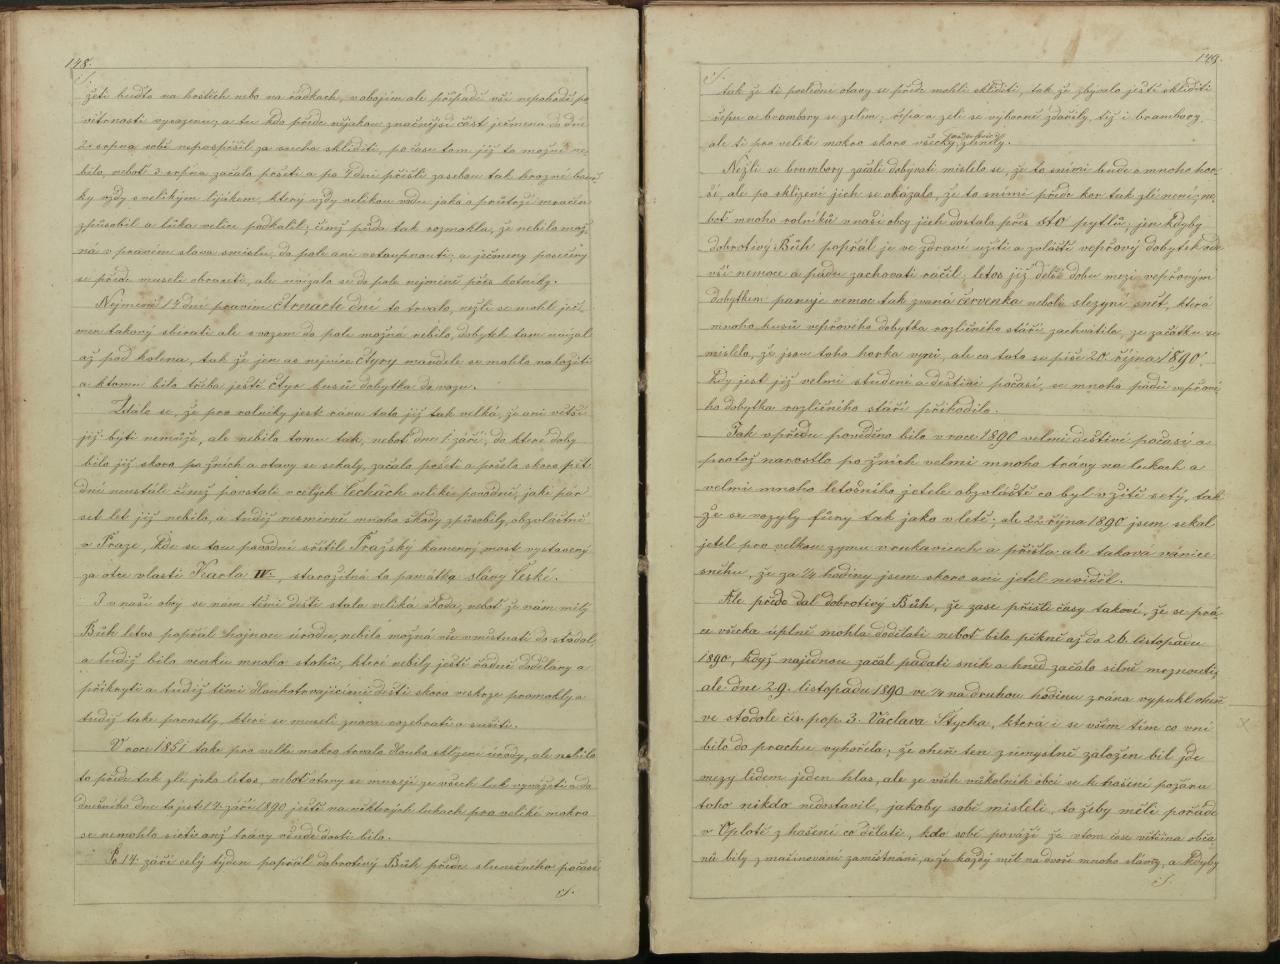 148.
žeti buďto na hostěch nebo na řádkach, v obojím ale případě vší nepohodě po
větrnosti vyvazenu; a tu kdo přede nějakou značnější část ječmena do dne
2. srpna sobě nepospíšil za sucha skliditi, po čase tom již to možné ne-
bilo, neboť 2 srpna začalo pršeti a po 7 dní přišli zasebou tak hrozné bouř-
ky vždy s velikým lijákem, který vždy velikou vodu jako o průtrži mračen
způsobil a lůka velice podkalil; čímž půda tak rozmokla, že nebilo mož-
ná v pravém slova smislu, do pole ani vstoupnouti; a ječmeny posečený
se přede museli obraceti, ale uvízalo se do pole nejméně přes kotníky.
Nejméně 14 dní pravím čtrnácte dní to trvalo, nežli se mohl ječ-
men takový sbírati ale s vozem do pole možná nebilo, dobytek tam uvízal
až pod kolena, tak že jen as nejvíce čtyry mandele se mohlo naložiti
a k tomu bilo třeba ještě čtyr kusů dobytka do vozu.
Zdálo se, že pro rolníky jest rána tato již tak velká, že ani větší
již býti nemůže, ale nebilo tomu tak, neboť dne 1 září; do které doby
bilo již skoro po žních a otavy se sekaly, začalo pršeti a pršelo skoro pět
dní neustále čímž povstali v celých Čechách veliké povodně, jaké pár
set let již nebilo, a tudíž nesmírně mnoho škody způsobily, obzvláštně
v Praze, kde se tou povodní sřítil Pražský kamenný most vystavený
za otce vlasti Karla IV., starožitná to památka slávy České.
I v naší obcy se nám těmi dešti stala veliká škoda, neboť že nám milý
Bůh letos popřál hojnou úrodu, nebilo možná vše vměstnati do stodol,
a tudíž bilo venku mnoho stohů, které nebily ještě řádně dodělany a
přikryti a tudíž těmi dlouhotrvajícimi dešti skoro veskrze promokly a
tudíž take porostly, které se museli znova rozebrati a sušiti.
V roce 1851 take pro velké mokro trvalo dlouho sklizení úrody, ale nebilo
to přede tak zlé jako letos, neboť otavy se musejí ze všech luk vyvážeti a do
dnešního dne to jest 14. září 1890 ještě na některých lukách pro veliké mokro
se nemohlo síeti anž trávy všude dosti bilo.
Po 14. září celý týden popřál dobrotivý Bůh přede slunečného počasí
149.
tak že ti poslední otavy se přede mohli skliditi, tak že zbývalo ještě skliditi
řepu a brambory se zelím; řepa a zelí se výborně zdařily, též i brambory,
ale ti pro veliké mokro skoro všecky shnily.
Nežli se brambory začali dobývati mislelo se, že to snimi bude o mnoho hor-
ší, ale po sklizení jich se okázalo, že to snimi přede kor tak zlé není, ne-
boť mnoho rolníků v naší obcy jich dostalo přes sto pytlů; jen kdyby
dobrotivý Bůh popřál je ve zdraví užíti a zvláště vepřový dobytek ode
vší nemoce a pádu zachovati ráčil; letos již delší dobu mezi vepřovým
dobytkem panuje nemoc tak zvaná červenka neboli slezyní snět, která
mnoho kusů vepřového dobytka rozličného stáří zachvátila, ze začátku se
mislelo, že jsou toho horka vyni, ale co toto se píše 20. října 1890.
kdy jest již velmi studené a deštivé počasí, se mnoho pádů vepřové-
ho dobytka rozličného stáří přihodilo.
Jak v předu povědíno bilo v roce 1890 velmi deštivé počasí a
protož narostlo po žních velmi mnoho trávy na lukach a
velmi mnoho letošního jetele obzvláště co byl v žitě setý, tak
že se vozyly fůry tak jako v letě; ale 22 října 1890 jsem sekal
jetel pro velkou zymu v rukavicech a přišla ale taková vánice
sněhu, že za ¼ hodiny jsem skoro ani jetel neviděl.
Ale přede dal dobrotivý Bůh, že zase přišli časy takové, že se prá-
ce všecka úplně mohla dodělati neboť bilo pěkně až do 26. listopadu
1890, když najednou začal padati sníh a hned začalo silně mrznouti,
ale dne 29. listopadu 1890 ve ¼ na druhou hodinu z rána vypukl oheň
ve stodole čís. pop. 3. Václava Štycha, která i se vším tím co vní
bilo do prachu vyhořela; že oheň ten zúmyslně založen bil jde
mezy lidem jeden hlas, ale ze všech vůkolních obcí se k hašení požáru
toho nikdo nedostavil, jakoby sobě misleli, to žeby měli pořáde
v Oplotě z hašení co dělati, kdo sobě pováží že v tom čase většina obča-
nů bily z mašinování zaměstnáni, a že každý měl na dvoře mnoho slámy, a kdyby